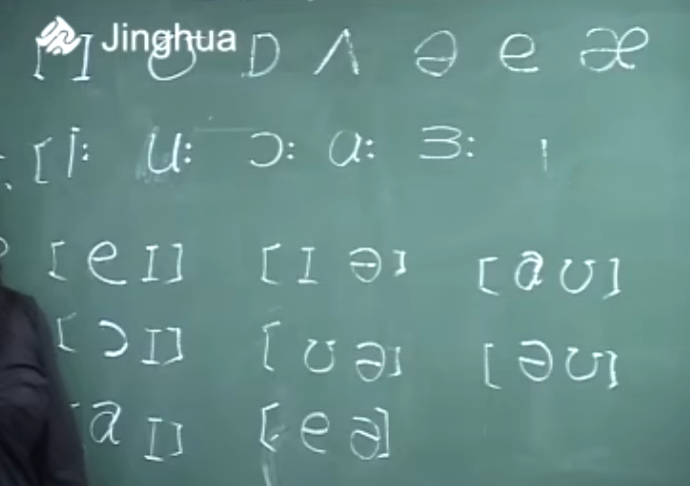 Jinghua
[ɪ ʊ ɒ ʌ ə e æ
[i: u: ɔ: ɑ: ɜ:
[eɪ] [ɪə] [aʊ]
[ɔɪ] [ʊə] [əʊ]
[aɪ] [eə]